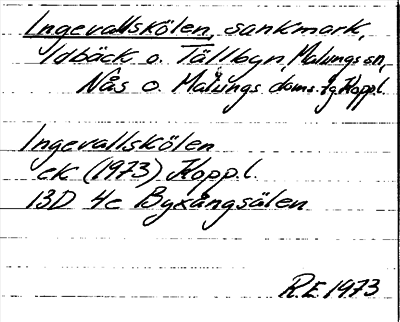 Ingevallskölen, sankmark,
Idbäck o. Tällbyn, Malungs sn,
Nås o. Malungs doms. tg Koppl.
Ingevallskölen
ek (1973) Koppl.
13D 4c Byxångsälen
R.E. 1973